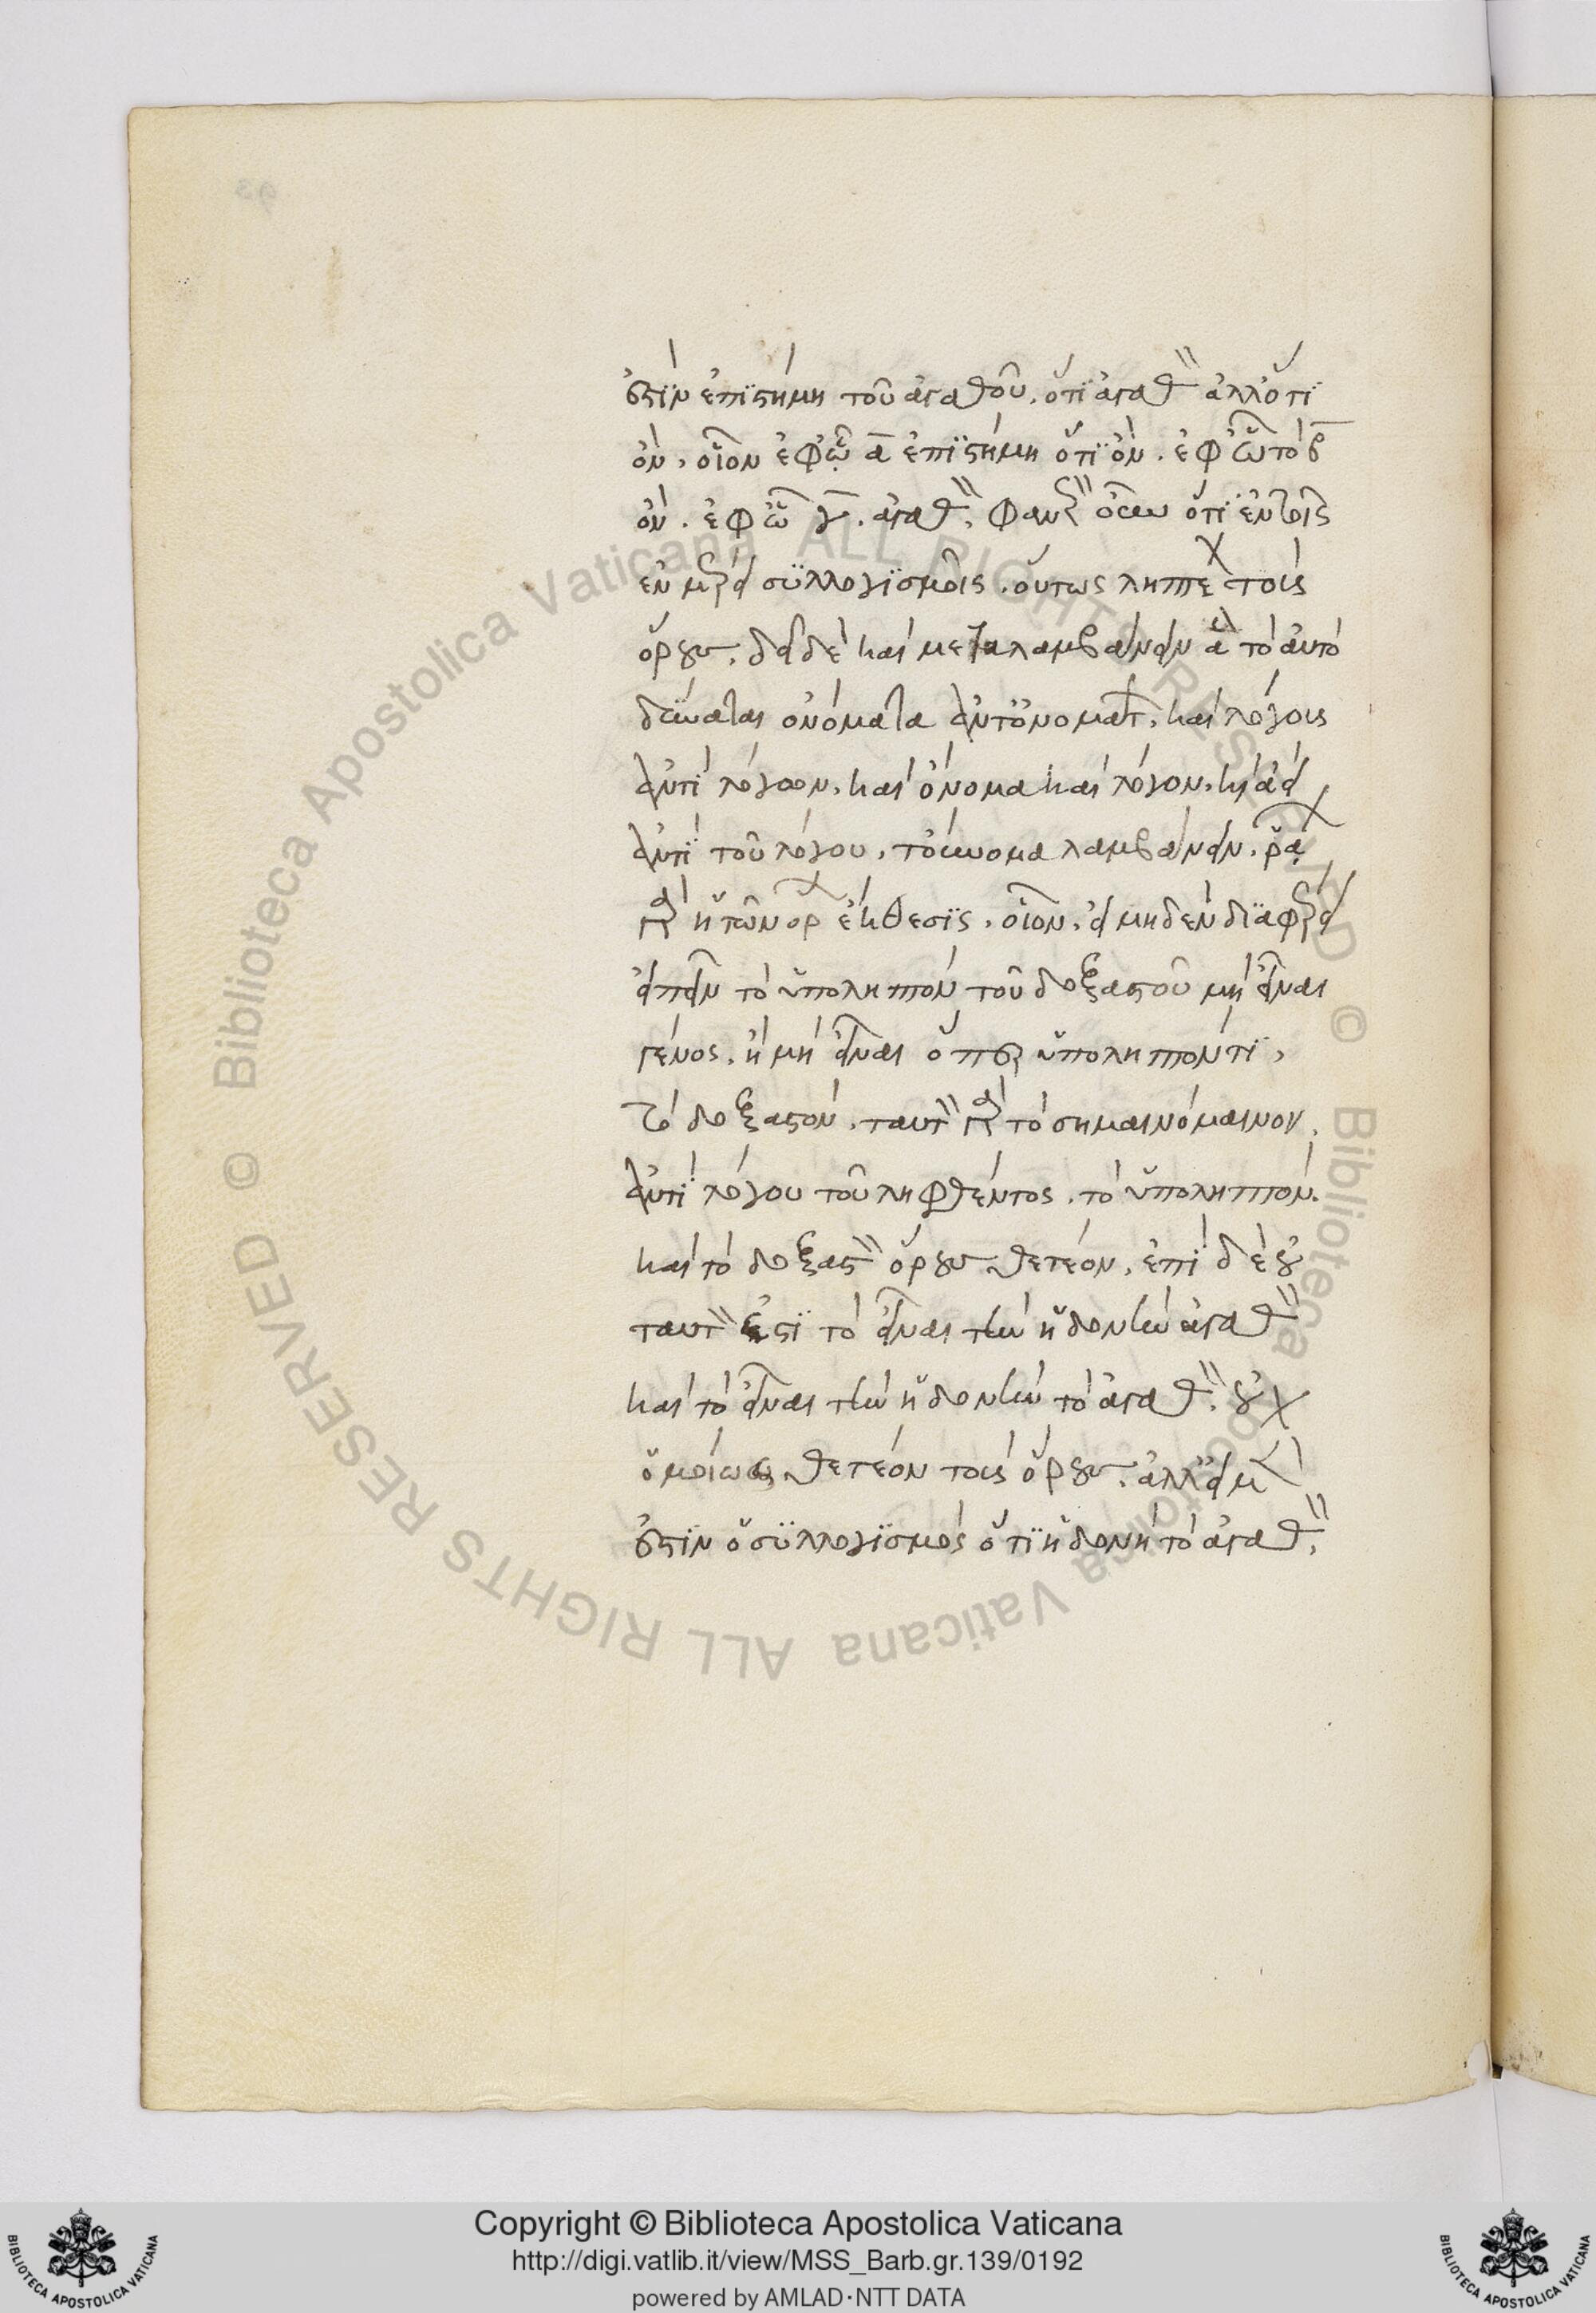 ἐστὶν ἐπιστήμη τοῦ ἀγαθοῦ. ὅτι ἀγαθὸν ἀλλ' ὅτι
ὄν, οἷον ἐφ' ᾧ α ἐπιστήμη ὅτι ὄν. ἐφ' ᾧ τὸ β
ὄν. ἐφ' ᾧ γ. ἀγαθόν. φανερὸν οὖν ὅτι ἐν τοῖς
ἐν μέρει συλλογισμοῖς. οὕτως ληπτέον τοὺς
ὅρους. δεῖ δὲ καὶ μεταλαμβάνειν ἃ τὸ αὐτὸ
δύναται ὀνόματα ἀντ' ὀνομάτων, καὶ λόγους
ἀντὶ λόγων, καὶ ὄνομα καὶ λόγον, καὶ ἀεὶ
ἀντὶ τοῦ λόγου, τοὔνομα λαμβάνειν. ῥᾴων
γὰρ ἡ τῶν ὅρων ἔκθεσις. οἷον, εἰ μηδὲν διαφέρει
εἰπεῖν τὸ ὑποληπτὸν τοῦ δοξαστοῦ μὴ εἶναι
γένος. ἢ μὴ εἶναι ὅπερ ὑποληπτόν τι,
τὸ δοξαστόν. ταυτὸν γὰρ τὸ σημαινόμαινον.
ἀντὶ λόγου τοῦ ληφθέντος. τὸ ὑποληπτὸν.
καὶ τὸ δοξαστὸν ὅρους θετέον. ἐπὶ δὲ οὐ
ταυτὸν ἐστὶ τὸ εἶναι τὴν ἡδονὴν ἀγαθὸν
καὶ τὸ εἶναι τὴν ἡδονὴν τὸ ἀγαθόν. οὐχ
ὁμοίως θετέον τοὺς ὅρους. ἀλλ' εἰ μὲν
ἐστὶν ὁ συλλογισμὸς ὅτι ἡ δονὴ τὸ ἀγαθόν.
Copyright © Biblioteca Apostolica Vaticana
http://digi.vatlib.it/view/MSS_Barb.gr.139/0192
powered by AMLAD·NTT DATA
© Biblioteca Apostolica Vaticana ALL RIGHTS RESERVED © Biblioteca Apostolica Vaticana ALL RIGHTS RESERVED
BIBLIOTECA APOSTOLICA VATICANA
BIBLIOTECA APOSTOLICA VATICANA